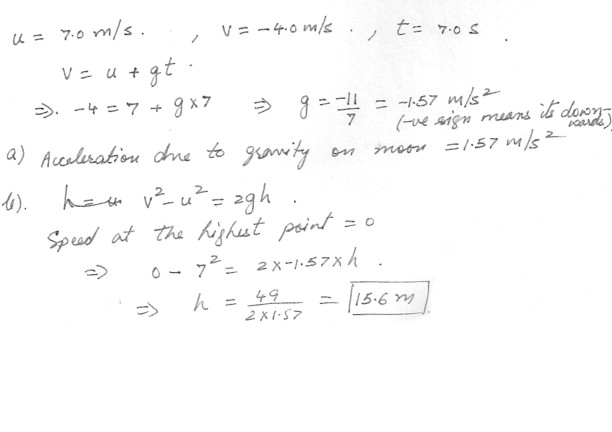 u = 7.0 m/s. , v = -4.0 m/s . , t = 7.0 s .
v = u + gt .
⇒. -4 = 7 + g×7 ⇒ g = -11/7 = -1.57 m/s²
(-ve sign means its downwards)
a) Acceleration due to gravity on moon = 1.57 m/s²
b). v² - u² = 2gh .
Speed at the highest point = 0
⇒ 0 - 7² = 2×-1.57×h .
⇒ h = 49/2×1.57 = 15.6 m